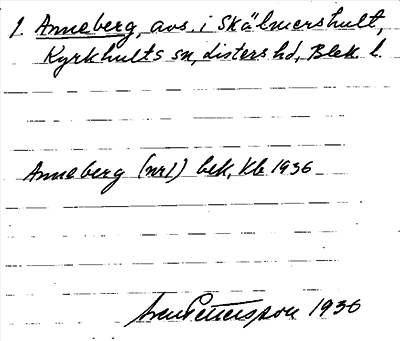 1. Anneberg, avs. i Skälmershult,
Kyrkhults sn, Listers hd, Blek. l.
Anneberg (nr 1) bek, Kb 1936
Pettersson 1936